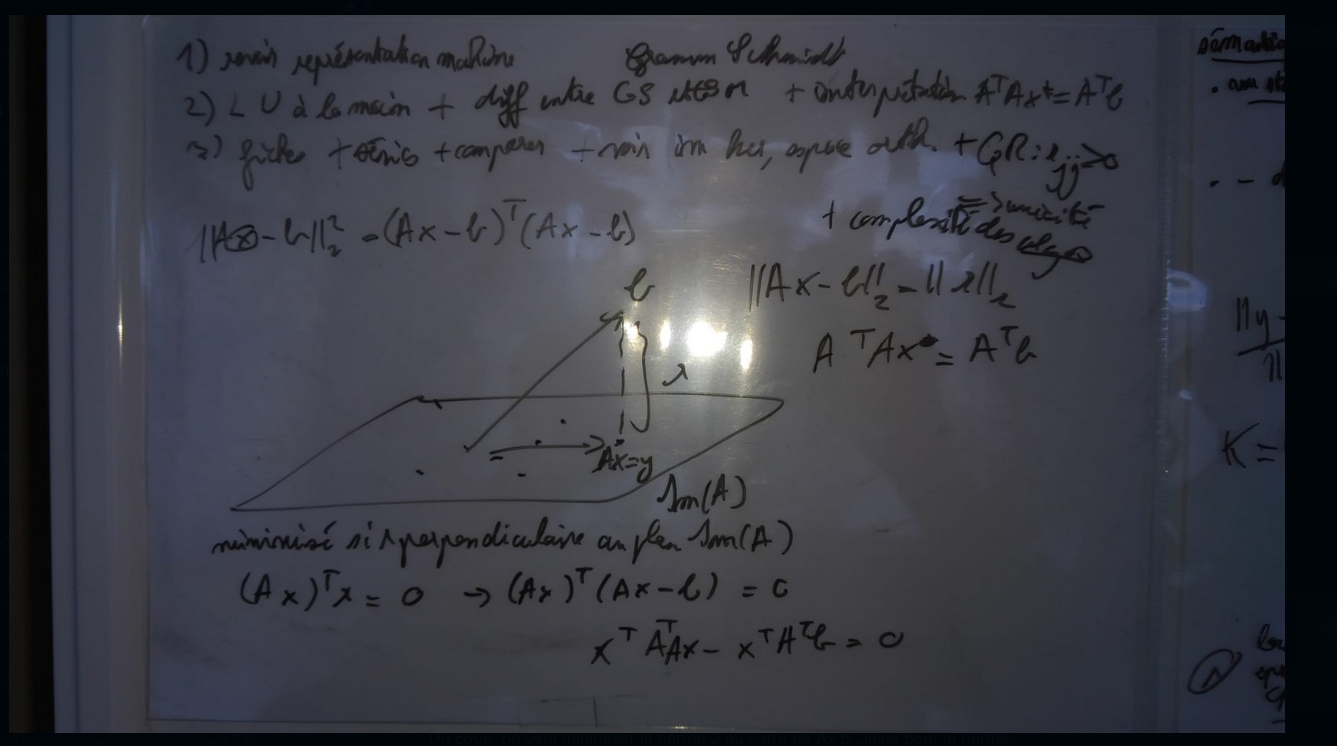 1) revoir représentation machine Gramm Schmidt
2) LU à la main + diff entre GS et GSM + interprétation AᵀAx* = Aᵀb
3) fiches + séries + comparer + voir im ker, espace orth. + QR : rⱼⱼ > 0
⇒ unicité
+ complexité des algos
||Ax - b||₂² = (Ax - b)ᵀ(Ax - b)
b
||Ax - b||₂ = ||r||₂
AᵀAx = Aᵀb
r
Ax = y
Im(A)
minimisé si r perpendiculaire au plan Im(A)
(Ax)ᵀr = 0 → (Ax)ᵀ(Ax - b) = 0
xᵀAᵀAx - xᵀAᵀb = 0
||y -
||
K =